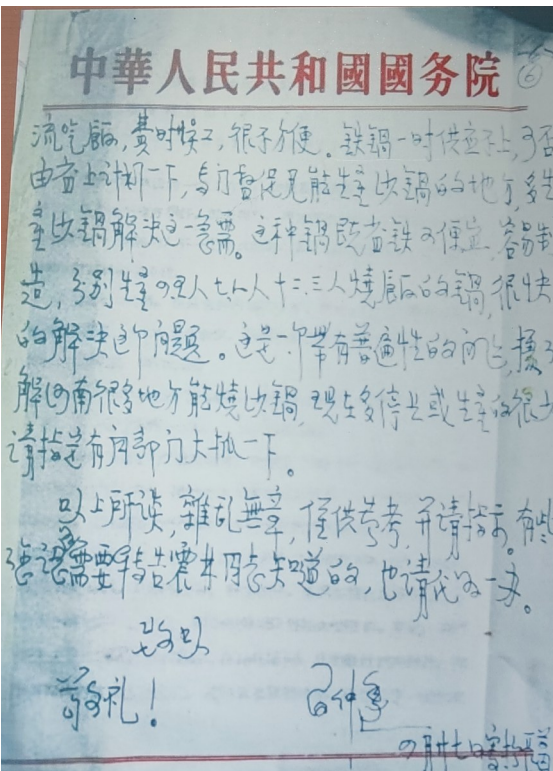 中華人民共和國國务院
⑥
流吃飯,費时悮工,很不方便。鉄鍋一时供应不上,可否
由省上计划一下,专门督促凡能生產砂鍋的地方,多生
產砂鍋解决这一急需。这种鍋既省鉄又便宜,容易製
造,分别生產四五人七八人十二三人燒飯的鍋,很快
的解决这个问题。这是一个带有普遍性的问題,據了
解河南很多地方能燒砂鍋,现在多停止或生產的很少
请指定有関部门大抓一下。
以上所谈,雜乱無章,僅供参考,并请指示。有些
需要转告震林同志知道的,也请代为一办。
此致以
敬礼!
習仲勳
四月廿七日